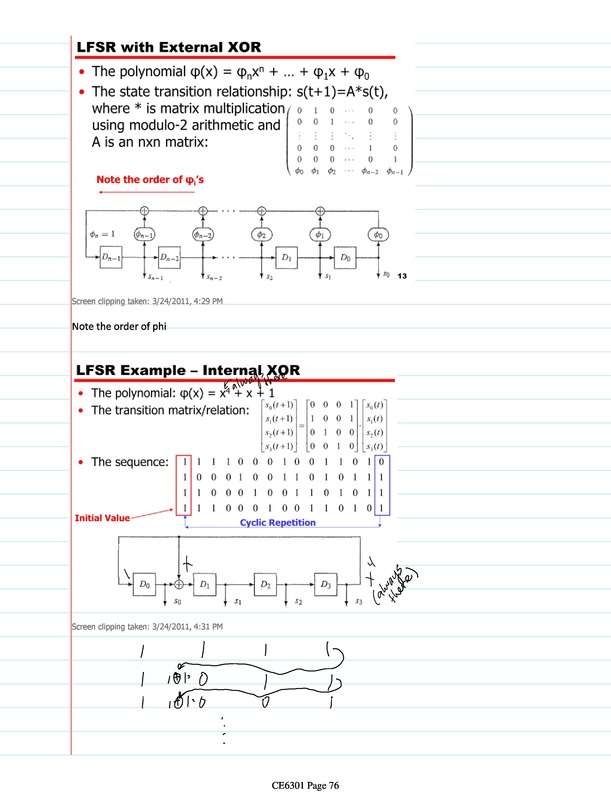 LFSR with External XOR
• The polynomial φ(x) = φₙxⁿ + … + φ₁x + φ₀
• The state transition relationship: s(t+1)=A*s(t),
where * is matrix multiplication
using modulo-2 arithmetic and
A is an nxn matrix:
0 1 0 ⋯ 0 0
0 0 1 ⋯ 0 0
⋮ ⋮ ⋮ ⋱ ⋮ ⋮
0 0 0 ⋯ 1 0
0 0 0 ⋯ 0 1
φ₀ φ₁ φ₂ ⋯ φₙ₋₂ φₙ₋₁
Note the order of φᵢ's
φₙ = 1 φₙ₋₁ φₙ₋₂ φ₂ φ₁ φ₀
Dₙ₋₁ Dₙ₋₂ D₁ D₀
sₙ₋₁ sₙ₋₂ s₂ s₁ s₀ 13
Screen clipping taken: 3/24/2011, 4:29 PM
Note the order of phi
LFSR Example – Internal XOR
always there
• The polynomial: φ(x) = x⁴ + x + 1
• The transition matrix/relation:
s₀(t+1) 0 0 0 1 s₀(t)
s₁(t+1) = 1 0 0 1 · s₁(t)
s₂(t+1) 0 1 0 0 s₂(t)
s₃(t+1) 0 0 1 0 s₃(t)
• The sequence:
1 1 1 1 0 0 0 1 0 0 1 1 0 1 0 1
1 0 0 0 1 0 0 1 1 0 1 0 1 1 1 1
1 1 0 0 0 1 0 0 1 1 0 1 0 1 1 1
1 1 1 0 0 0 1 0 0 1 1 0 1 0 1 1
Initial Value
Cyclic Repetition
1 x x⁴
D₀ D₁ D₂ D₃
(always there)
s₀ s₁ s₂ s₃
Screen clipping taken: 3/24/2011, 4:31 PM
1 1 1 1
1 1⊕1=0 1 1
1 1⊕1=0 0 1
⋮
CE6301 Page 76